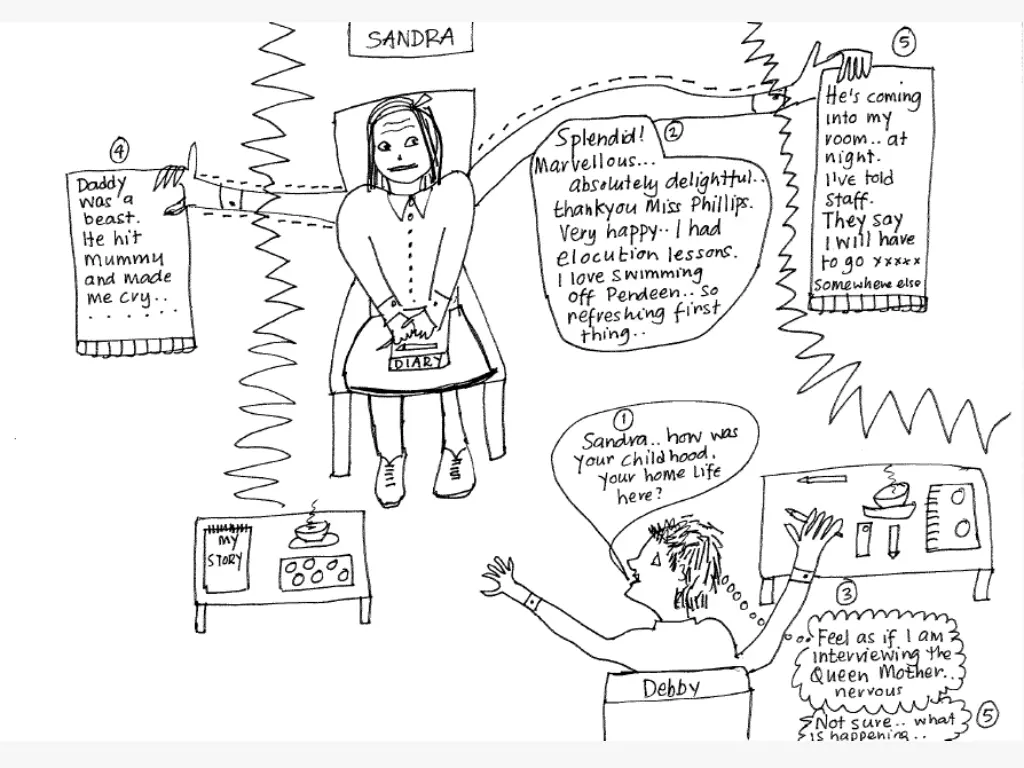 SANDRA
①
Sandra.. how was
your childhood.
your home life
here?
②
Splendid!
Marvellous...
absolutely delightful..
thankyou Miss Phillips.
Very happy.. I had
elocution lessons.
I love swimming
off Pendeen.. so
refreshing first
thing..
③
Feel as if I am
interviewing the
Queen Mother..
nervous
④
Daddy
was a
beast.
He hit
Mummy
and made
me cry..
.......
⑤
He's coming
into my
room.. at
night.
I've told
staff.
They say
I will have
to go xxxxx
somewhere else
⑤
Not sure.. what
is happening..
DIARY
MY
STORY
Debby